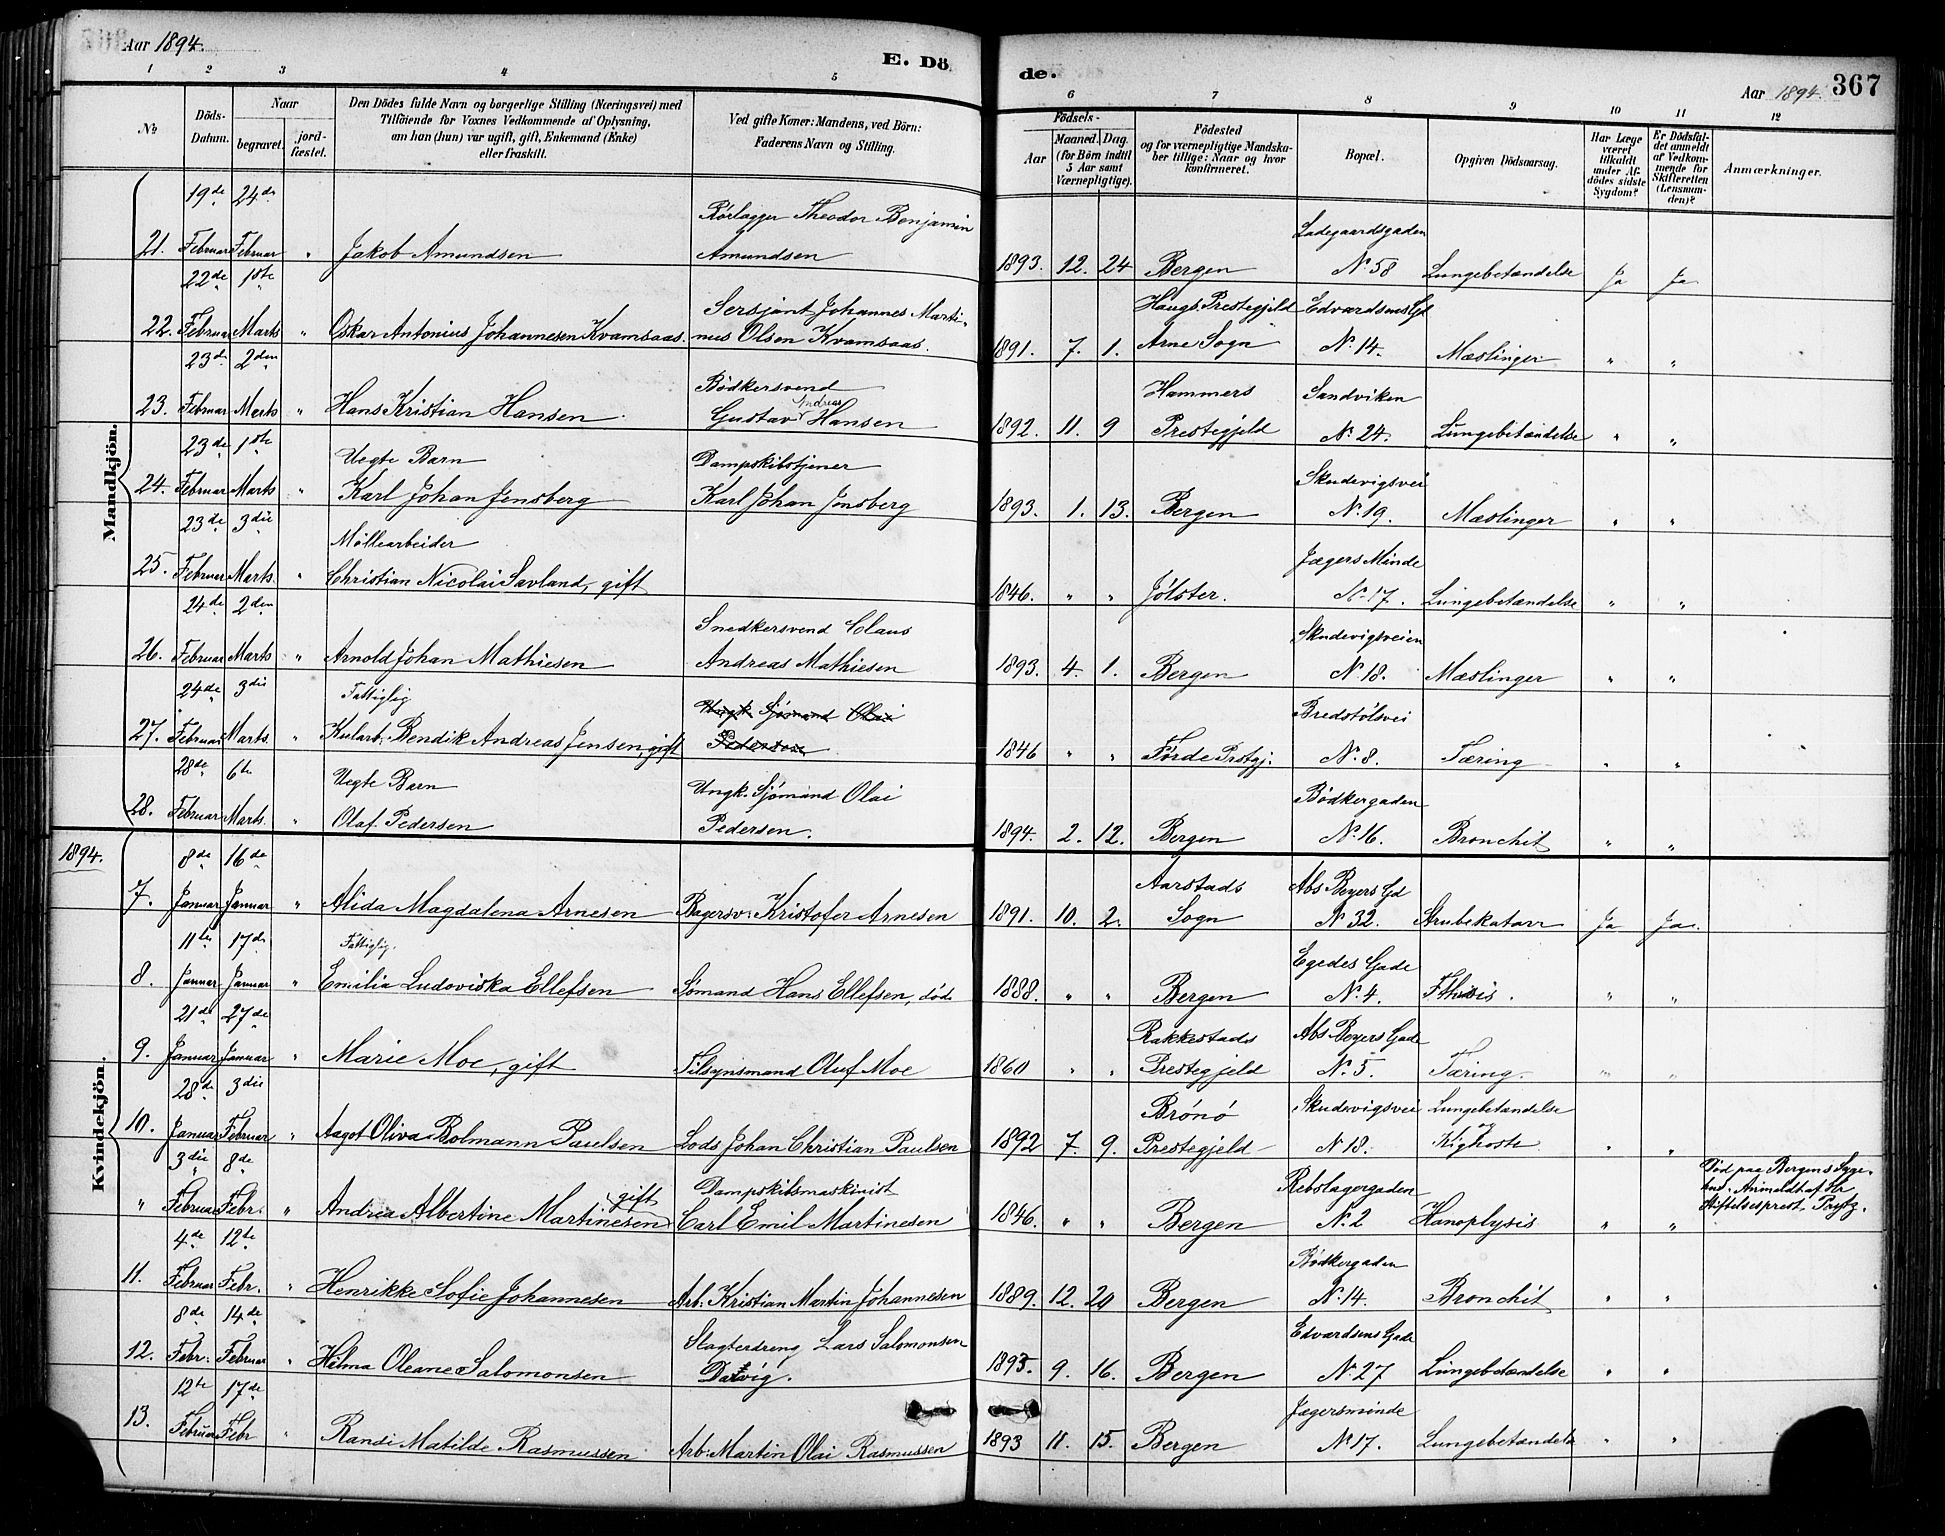 Aar 1894.
E. Dö
de.
Aar 1894.
367
1 2 3 4 5 6 7 8 9 10 11 12
No
Döds-Datum.
Naar
begravet.
jord-fæstet.
Den Dödes fulde Navn og borgerlige Stilling (Næringsvei) med
Tilföiende for Voxnes Vedkommende af Oplysning,
om han (hun) var ugift, gift, Enkemand (Enke)
eller fraskilt.
Ved gifte Koner: Mandens, ved Börn:
Faderens Navn og Stilling.
Födsels-
Aar
Maaned. Dag.
(for Börn indtil
5 Aar samt
Værnepligtige).
Födested
og for værnepligtige Mandska-
ber tillige: Naar og hvor
konfirmeret.
Bopæl.
Opgiven Dödsaarsag.
Har Læge
været
tilkaldt
under Af-
dödes sidste
Sygdom?
Er Dödsfal-
det anmeldt
af Vedkom-
mende for
Skifteretten
(Lensman-
den)?
Anmærkninger.
Mandkjön.
19de 24de Rørlægger Theodor Benjamin Ladegaardsgaden
21. Februar Februar " Jakob Amundsen Amundsen 1893. 12. 24 Bergen No 58 Lungebetændelse Ja Ja
22de 1ste Sersjant Johannes Marti- Haugs Prestegjeld Edvardsens Gd
22. Februar Marts " Oskar Antonius Johannesen Kvamsaas. nus Olsen Kvamsaas. 1891. 7. 1. Arne Sogn No 14. Mæslinger " "
23d 2den Bödkersvend Hammers Sandviken
23. Februar Marts " Hans Kristian Hansen Gustav Andreas Hansen 1892. 11. 9 Prestegjeld No 24. Lungebetændelse " "
23de 1ste Uegte Barn Dampskibstjener Skudevigsvei
24. Februar Marts " Karl Johan Jensberg Karl Johan Jensberg 1893. 1. 13. Bergen No 19. Mæslinger " "
23de 3die Möllearbeider Jægers Minde
25. Februar Marts " Christian Nicolai Savland, gift 1846. " " Jölster. No 17. Lungebetændelse " "
24de 2den Snedkersvend Claus Skudevigsveien
26. Februar Marts " Arnold Johan Mathiesen Andreas Mathiesen 1893. 4. 1. Bergen No 18. Mæslinger " "
24de 3die Fattiglig Ungk. Sjömand Olai Bredstölsvei
27. Februar Marts " Kularb. Bendik Andreas Jensen, gift Pedersen 1846 " " Förde Prstgj. No 8. Tæring " "
28de 6te Uegte Barn Ungk. Sjömand Olai Bödkergaden
28. Februar Marts. " Olaf Pedersen Pedersen. 1894. 2. 12. Bergen No 16. Bronchit " "
1894.
Kvindekjön.
8de 16de Aarstads Abs Beyers Gd
7. Januar Januar " Alida Magdalena Arnesen Bagersv: Kristofer Arnesen 1891. 10. 2. Sogn No 32. Strubekatarr Ja Ja.
11te 17de Fattiglig. Egedes Gade
8. Januar Januar " Emilia Ludoviska Ellefsen Sømand Hans Ellefsen, död 1888. " " Bergen No 4. Fthisis. " "
21de 27de Rakkestads Abs Beyers Gade
9. Januar Januar " Marie Moe, gift Tilsynsmand Oluf Moe 1860 " " Prestegjeld No 5. Tæring. " "
28de 3die Brönö Skudevigsvei Lungebetændelse
10. Januar Februar " Aagot Oliva Bolmann Paulsen Lods Johan Christian Paulsen 1892 7. 9. Prestegjeld No 18. og Kighoste " "
3die 8de gift Dampskibsmaskinist Rebslagergaden Död paa Bergens Syge-
" Februar Febr. " Andrea Albertine Martinesen Carl Emil Martinesen 1846. " " Bergen No 2 Hanoplysis " " hus. Anmeldt af Hr Stiftelsesprest Prytz.
4de 12te Bödkergaden
11. Februar Febr. " Henrikke Sofie Johannesen Arb: Kristian Martin Johannesen 1889. 12. 20 Bergen No 14. Bronchit " "
8de 14de Slagterdreng Lars Salomonsen Edvardsens Gade
12. Febr. Februar " Hilma Oleane Salomonsen Datvig. 1893. 9. 16. Bergen No 27 Lungebetændelse " "
12te 17de Jægersminde
13. Februar Febr " Randi Matilde Rasmussen Arb: Martin Olai Rasmussen 1893 11. 15. Bergen No 17. Lungebetændelse " "